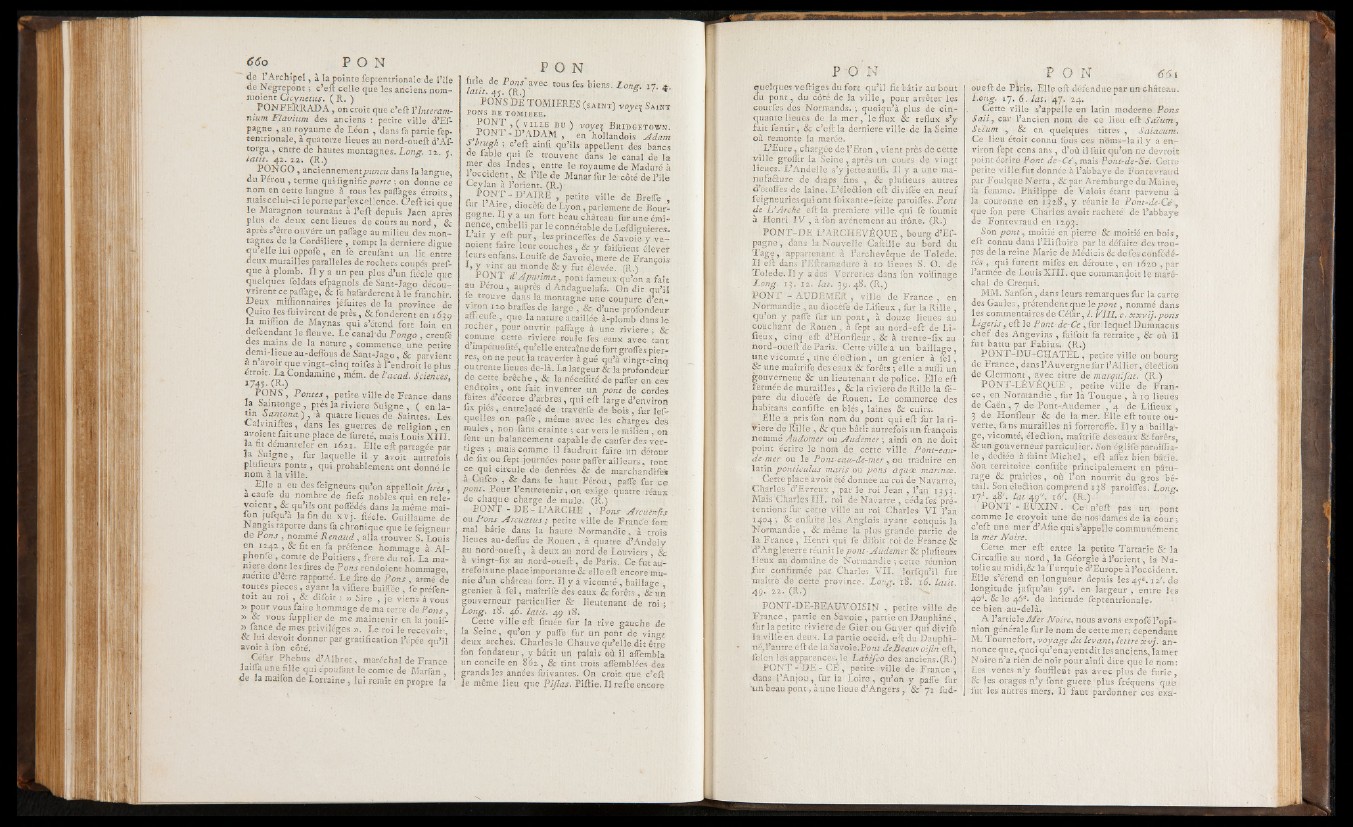 660 P O N
de l'Archipel, à la pointe septentrionale de l'île
de Negrepont : c'est celle que les anciens nom-
moient Cicynetus. ( R. )
PONFERRADA, on croit que c'est l'Interam-
nium Flavium des anciens : petite ville d'Es-
pagne, au royaume de Léon, dans sa partie sep-
tentrionale, à quatorze lieues au nord-ouest d'As-
torga, entre de hautes montagnes. Long. 12. 5.
latit. 42. 22. (R.)
PONGO, anciennement puncu dans la langue
du Pérou, terme qui signifie porte : on donne ce
nom en cette langue à tous les passages étroits,
mais celui-ci le porte par excellence. C'est ici que
le Maragnon tournant à l'est depuis Jaen après
plus de deux cent lieues de cours au nord, &
après s'être ouvert un passage au milieu des mon-
tagnes de la Cordiliere, rompt la derniere digue
qu'elle lui oppose, en se creusant un lit entre
deux murailles paralleles de rochers coupés pres-
que à plomb. Il y a un peu plus d'un siécle que
quelques soldats espagnols de Sant-Jago décou-
vrirent ce passage, & se hasarderent à le franchir.
Deux missionnaires jésuites de la province de
Quito les suivirent de près, & fonderent en 1639
la mission de Maynas qui s'étend fort loin en
descendant le fleuve. Le canal du Pongo, creusé
des mains de la nature, commence une petite
demi-lieue au-dessous de Sant-Jago, & parvient
à n'avoir que vingt-cinq toises à l'endroit le plus
étroit. La Condamine, mém. de l'acad. Sciences,
1745. (R.)
PONS, Pontes, petite ville de France dans
la Saintonge, près la riviere Suigne, ( en la-
tin Santona ), à quatre lieues de Saintes. Les
Calvinistes, dans les guerres de religion, en
avoient fait une place de sureté, mais Louis XIII.
la fit démanteler en 1621. Elle est partagée par
la Suigne, sur laquelle il y avoit autrefois
plusieurs ponts, qui probablement ont donné le
nom à la ville.
Elle a eu des seigneurs qu'on appelloit sires,
à cause du nombre de fiefs nobles qui en rele-
voient, & qu'ils ont possédés dans la même mai-
son jusqu'à la fin du xvj. siécle. Guillaume de
Nangis raporte dans sa chronique que le seigneur
de Pons, nommé Renaud, alla trouver S. Louis
en 1242, & fit en sa présence hommage à Al-
phonse, comte de Poitiers, frere du roi. La ma-
niere dont les sires de Pons rendoient hommage,
mérite d'être rapporté. Le sire de Pons, armé de
toutes pieces, ayant la visiere baissée, se présen-
toit au roi, & disoit : » Sire, je viens à vous
» pour vous faire hommage de ma terre de Pons,
» & vous supplier de me maintenir en la jouis-
» sance de mes privilèges ». Le roi le recevoit,
& lui devoit donner par gratification l'épée qu'il
avoit à son côté.
César Phebus d'Albret, maréchal de France
laissa une fille qui épousant le comte de Marsan,
de la maison de Lorraine, lui remit en propre la
P O N
sirie de Pons avec tous ses biens. Long. 17. 4.
latit. 45. (R.)
PONS DE TOMIERES (SAINT) voyez SAINT
PONS DE TOMIERE.
PONT, ( VILLE DU ) voyez BRIDGETOWN.
PONT-D'ADAM, en hollandois Adam
S'brugh : c'est ainsi qu'ils appellent des bancs
de sable qui se trouvent dans le canal de la
mer des Indes, entre le royaume de Maduré à
l'occident, & l'île de Manar sur le côté de l'île
Ceylan à l'orient. (R.)
PONT-D'AIRE, petite ville de Bresse,
sur l'Aire, diocése de Lyon, parlement de Bour-
gogne. Il y a un fort beau château sur une émi-
nence, embelli par le connétable de Lesdiguieres.
L'air y est pur, les princesses de Savoie y ve-
noient faire leur couches, & y faisoient élever
leurs enfans. Louise de Savoie, mere de François
I, y vint au monde & y fut élevée. (R.)
PONT d'Apurima, pont fameux qu'on a fait
au Pérou, auprès d'Andaguelass. On dit qu'il
se trouve dans la montagne une coupure d'en-
viron 120 brasses de large, & d'une profondeur
affreuse, que la nature a taillée à-plomb dans le
rocher, pour ouvrir passage à une riviere, &
comme cette riviere roule ses eaux avec tant
d'impétuosité, qu'elle entraîne de fort grosses pier-
res, on ne peut la traverser à gué qu'à vingt-cinq
ou trente lieues de-là. La largeur & la profondeur
de cette brèche, & la nécessité de passer en ces
endroits, ont fait inventer un pont de cordes
faites d'écorce d'arbres, qui est large d'environ
six piés, entrelacé de traverses de bois, sur les-
quelles on passe, même avec les charges des
mules, non sans crainte ; car vers le milieu, on
sent un balancement capable de causer des ver-
tiges ; mais comme il faudroit faire un détour
de six ou sept journées pour passer ailleurs, tout
ce qui circule de denrées & de marchandises
à Cusco, & dans le haut Pérou, passe sur ce
pont. Pour l'entretenir, on exige quatre réaux
de chaque charge de mule. (R.)
PONT-DE-L'ARCHE, Pons Arcuensis
ou Pons Arcuatus ; petite ville de France fort
mal bâtie dans la haute Normandie, à trois
lieues au-dessus de Rouen, à quatre d'Andely
au nord-ouest, à deux au nord de Louviers, &
à vingt-six au nord-ouest, de Paris. Ce fut au-
trefois une place importante & elle est encore mu-
nie d'un château fort. Il y a vicomté, baillage,
grenier à sel, maîtrise des eaux & forêts, & un
gouverneur particulier & lieutenant de roi ;
Long. 18. 46. latit. 49 18.
Cette ville est située sur la rive gauche de
la Seine, qu'on y passe sur un pont de vingt-
deux arches. Charles le Chauve qu'elle dit être
son fondateur, y bâtit un palais où il assembla
un concile en 862, & tint trois assemblées des
grands les années suivantes. On croit que c'est
le même lieu que Pistas. Pistie. Il reste encore
P O N
quelques vestiges du fort qu'il fit bâtir au bout
du pont, du côté de la ville, pour arrêter les
courses des Normands ; quoiqu'à plus de cin-
quante lieues de la mer, le flux & reflux s'y
fait sentir, & c'est la derniere ville de la Seine
où remonte la marée.
L'Eure, chargée de l'Eton, vient près de cette
ville grossir la Seine, après un cours de vingt
lieues. L'Andelle s'y jette aussi. Il y a une ma-
nufacture de draps fins, & plusieurs autres
d'étoffes de laine. L'élection est divisée en neuf
seigneuries qui ont soixante-seize paroisses. Pont
de L'Arche est la premiere ville qui se soumit
à Henri IV, à son avénement au trône. (R.)
PONT-DE L'ARCHEVÊQUE, bourg d'Es-
pagne, dans la Nouvelle Castille au bord du
Tage, appartenant à l'archevêque de Tolede.
Il est dans l'Estramadure à 10 lieues S. O. de
Tolede. Il y a des Verreries dans son voisinage
Long. 13. 12. lat. 39. 48. (R.)
PONT-AUDEMER, ville de France, en
Normandie, au diocèse de Lisieux, sur la Rille,
qu'on y passe sur un pont, à douze lieues au
couchant de Rouen, à sept au nord-est de Li-
sieux, cinq est d'Honfleur, & à trente-six au
nord-ouest de Paris. Cette ville a un baillage,
une vicomté, une élection, un grenier à sel,
& une maîtrise des eaux & forêts ; elle a aussi un
gouverneur & un lieutenant de police. Elle est
fermée de murailles, & la riviere de Rille la sé-
pare du diocèse de Rouen. Le commerce des
habitans consiste en blés, laines & cuirs.
Elle a pris son nom du pont qui est sur la ri-
viere de Rille, & que bâtit autrefois un françois
nommé Audomer ou Audemer ; ainsi on ne doit
point écrire le nom de cette ville Pont-eau-
de-mer ou le Pont-eau-de-mer, ou traduire en
latin ponticulus maris ou pons aquæ marinæ.
Cette place avoit été donnée au roi de Navarre,
Charles d'Evreux, par le roi Jean, l'an 1353.
Mais Charles III. roi de Navarre, céda ses pré-
tentions sur cette ville au roi Charles VI l'an
1404 ; & ensuite les Anglois ayant conquis la
Normandie, & même la plus grande partie de
la France, Henri qui se disoit roi de France &
d'Angleterre réunit le pont-Audemer & plusieurs
lieux au domaine de Normandie ; cette réunion
fut confirmée par Charles VII. lorsqu'il fut
maître de cette province. Long. 18. 16. latit.
49. 22. (R.)
PONT-DE-BEAUVOISIN, petite ville de
France, partie en Savoie, partie en Dauphiné,
sur la petite riviere de Gier ou Guyer qui divise
la ville en deux. La partie occid. est du Dauphi-
né, l'autre est de la Savoie. Pons de Beauvoisin est,
selon les apparences, le Labisco des anciens. (R.)
PONT-DE-CÉ, petite ville de France,
dans l'Anjou, sur la Loire, qu'on y passe sur
un beau pont, à une lieue d'Angers, & 72 sud-
P O N 661
ouest de Paris. Elle est défendue par un château.
Long. 17. 6. lat. 47. 24.
Cette ville s'appelle en latin moderne Pons
Saii, car l'ancien nom de ce lieu est Saïum,
Seïum, & en quelques titres, Saiacum.
Ce lieu étoit connu sous ces noms-là il y a en-
viron sept cens ans, d'où il suit qu'on ne devroit
point écrire Pont de-Cé, mais Pont-de-Sé. Cette
petite ville fut donnée à l'abbaye de Fontevraud
par Foulque Nerra, & par Aremburge du Maine,
sa femme. Philippe de Valois étant parvenu à
la couronne en 1328, y réunit le Pont-de-Cé,
que son pere Charles avoit racheté de l'abbaye
de Fontevraud en 1293.
Son pont, moitié en pierre & moitié en bois,
est connu dans l'Histoire par la défaite des trou-
pes de la reine Marie de Médicis & de ses confédé-
rés, qui furent mises en déroute, en 1620, par
l'armée de Louis XIII. que commandoit le maré-
chal de Crequi.
MM. Sanson, dans leurs remarques sur la carte
des Gaules, prétendent que le pont, nommé dans
les commentaires de César, l. VIII, c. xxvij. pons
Ligeris, est le Pont de-Cé, sur lequel Dumnacus
chef des Angevins, faisoit sa retraite, & où il
fut battu par Fabius. (R.)
PONT-DU-CHATEL, petite ville ou bourg
de France, dans l'Auvergne sur l'Allier, élection
de Clermont, avec titre de marquisat. (R.)
PONT-LÉVÊQUE, petite ville de Fran-
ce, en Normandie, sur la Touque, à 10 lieues
de Caën, 7 de Pont-Audemer, 4 de Lisieux,
3 de Honfleur & de la mer. Elle est toute ou-
verte, sans murailles ni forteresse. Il y a bailla-
ge, vicomté, élection, maîtrise des eaux & forêts,
& un gouverneur particulier. Son église paroissia-
le, dédiée à saint Michel, est assez bien bâtie.
Son territoire consiste principalement en pâtu-
rage & prairies, où l'on nourrit du gros bé-
tail. Son élection comprend 138 paroisses. Long.
17°. 48'. lat 49°. 16'. (R.)
PONT-EUXIN. Ce n'est pas un pont
comme le croyoit une de nos dames de la cour ;
c'est une mer d'Asie qui s'appelle communément
la mer Noire.
Cette mer est entre la petite Tartarie & la
Circassie au nord, la Géorgie à l'orient, la Na-
tolie au midi, & la Turquie d'Europe à l'occident.
Elle s'étend en longueur depuis les 45°. 12'. de
longitude jusqu'au 59°. en largeur, entre les
40°. & le 46°. de latitude septentrionale
ce bien au-delà.
A l'article Mer Noire, nous avons exposé l'opi-
nion générale sur le nom de cette mer ; cependant
M. Tournefort, voyage du levant, lettre xvj. an-
nonce que, quoi qu'en ayent dit les anciens, la mer
Noire n'a rien de noir pour ainsi dire que le nom :
les vents n'y soufflent pas avec plus de furie,
& les orages n'y sont guere plus fréquens que
sur les autres mers. Il faut pardonner ces exa-